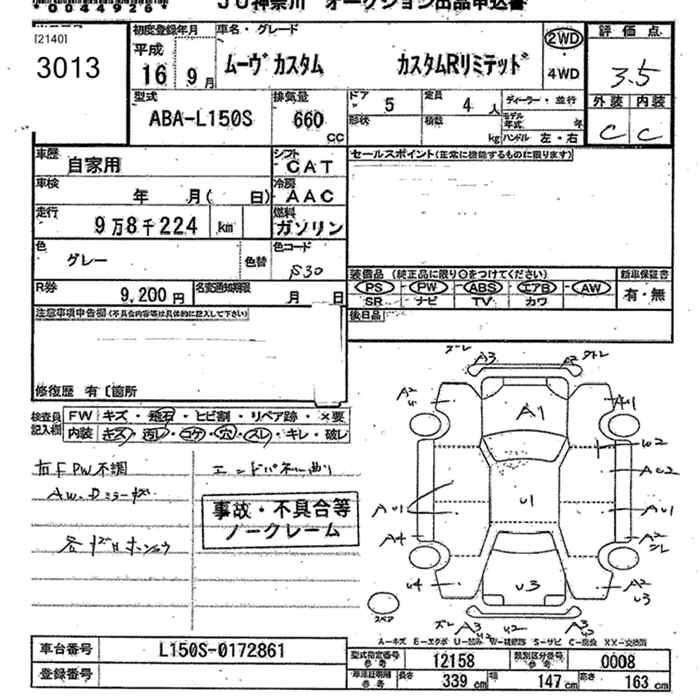 *0044926*
JU神奈川 オークション出品申込書
[2140]
3013
初度登録年月
平成
16年 9月
車名・グレード
ムーヴカスタム カスタムRリミテッド
2WD
・
4WD
評価点
3.5
外装 内装
C C
型式
ABA-L150S
排気量
660
CC
ドア 5
定員 4 人
形状
積載 kg
ディーラー・並行
モデル年式 年
ハンドル 左・右
車歴
自家用
シフト
CAT
車検
年 月( 日)
冷房
AAC
走行
9万8千224 km
燃料
ガソリン
色
グレー
色替
色コード
S30
R券
9,200 円
名変通知期限
月 日
セールスポイント(正常に機能するものに限ります)
装備品(純正品に限り○をつけてください)
PS・PW・ABS・エアB・AW
SR ナビ TV カワ
新車保証書
有・無
後日品
注意事項申告欄(不具合内容等は具体的に記入して下さい)
修復歴 有〔箇所
検査員記入欄
FW キズ・飛石・ヒビ割・リペア跡・×要
内装 キズ・汚レ・コゲ・穴・スレ・キレ・破レ
右FPW不調
AW.Dミラーキズ
エンドパネル曲り
事故・不具合等
ノークレーム
ズレ A3 A2
A2
A1
AU1
U2
AU2
AU1
U1
AU1
A4
A2
U4
U3
A2
U3
A3
U2
A3
スペア
A-キズ E-エクボ U-凹み W-補修跡 S-サビ C-腐食 XX-交換済
車台番号
L150S-0172861
登録番号
型式指定番号
参考
12158
類別区分番号
参考
0008
車庫証明用
参考
長さ 339 cm
幅 147 cm
高さ 163 cm